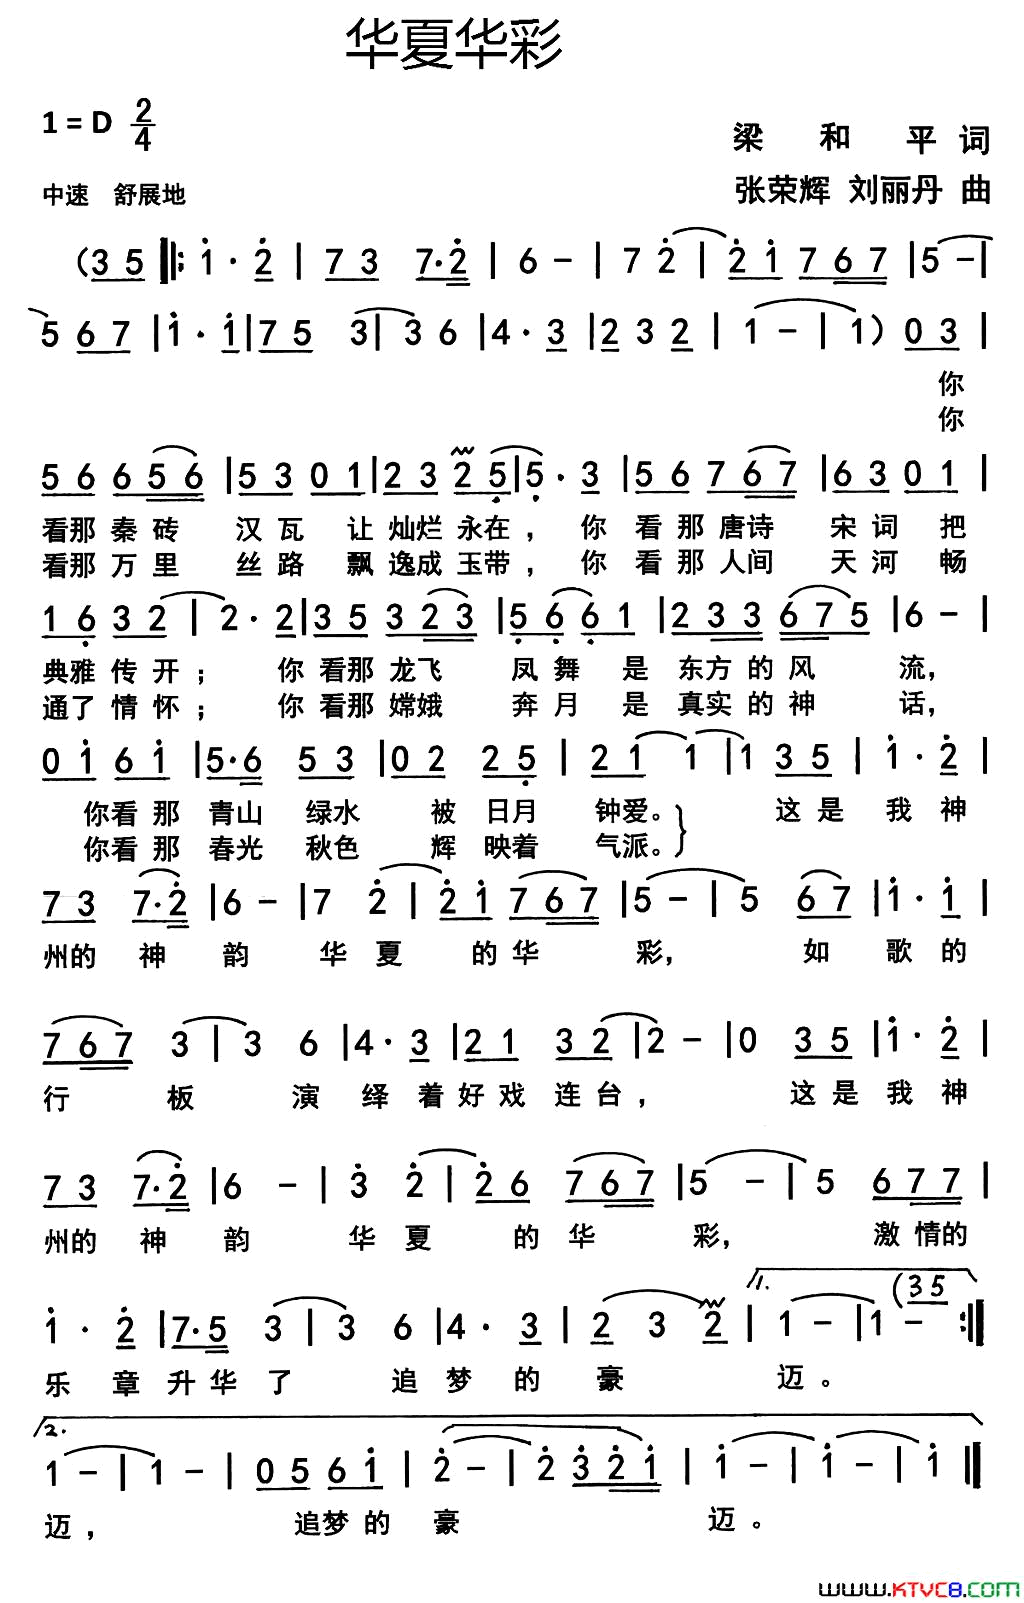 华夏华彩
1=D 2/4
梁和平 词
中速 舒展地
张荣辉 刘丽丹 曲
(3 5 ‖: 1̇ · 2̇ | 7 3 7·2̇ | 6 – | 7 2̇ | 2̇ 1̇ 7 6 7 | 5 – |
5 6 7 | 1̇ · 1̇ | 7 5 3 | 3 6 | 4 · 3 | 2 3 2 | 1 – | 1 ) 0 3 |
你
你
5 6 6 5 6 | 5 3 0 1 | 2 3 2 5̣ | 5̣ · 3 | 5 6 7 6 7 | 6 3 0 1 |
看那秦砖 汉瓦 让灿烂永在， 你看那唐诗 宋词 把
看那万里 丝路 飘逸成玉带， 你看那人间 天河 畅
1 6̣ 3 2 | 2 · 2 | 3 5 3 2 3 | 5̣ 6̣ 6̣ 1 | 2 3 3 6 7 5 | 6 – |
典雅传开； 你看那龙飞 凤舞是东方的风流，
通了情怀； 你看那嫦娥 奔月是真实的神话，
0 1̇ 6 1̇ | 5·6 5 3 | 0 2 2 5̣ | 2 1 1 | 1 3 5 | 1̇ · 2̇ |
你看那青山绿水 被日月钟爱。 这是我神
你看那春光秋色 辉映着气派。
7 3 7·2̇ | 6 – | 7 2̇ | 2̇ 1̇ 7 6 7 | 5 – | 5 6 7 | 1̇ · 1̇ |
州的神韵 华夏的华彩， 如歌的
7 6 7 3 | 3 6 | 4 · 3 | 2 1 3 2 | 2 – | 0 3 5 | 1̇ · 2̇ |
行板 演绎着好戏连台， 这是我神
7 3 7·2̇ | 6 – | 3̇ 2̇ | 2̇ 6 7 6 7 | 5 – | 5 6 7 7 |
州的神韵 华夏的华彩， 激情的
1. (3 5
1̇ · 2̇ | 7·5 3 | 3 6 | 4 · 3 | 2 3 2 | 1 – | 1 – :‖
乐章升华了 追梦的豪迈。
2.
1 – | 1 – | 0 5 6 1̇ | 2̇ – | 2̇ 3̇ 2̇ 1̇ | 1̇ – | 1̇ – | 1̇ ‖
迈， 追梦的豪 迈。
www.KTVC8.com